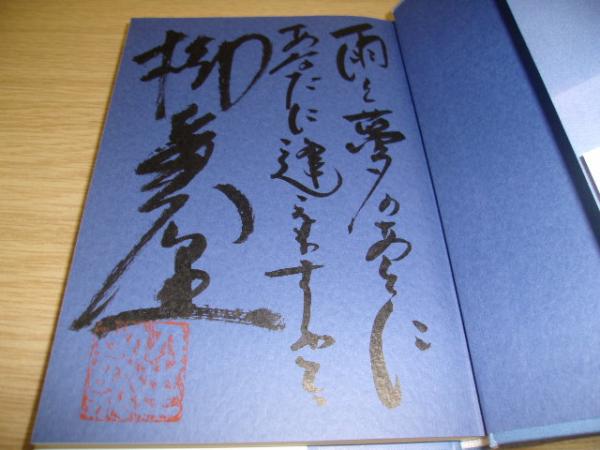 雨と夢のあとに
あなたに逢えます
柳美里